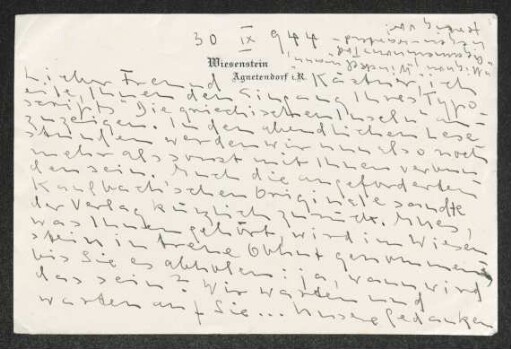 30 IX 944
Wiesenstein
Agnetendorf i. R.
Lieber Freund Kästner, ich
eile, Ihnen den Eingang Ihres Typo-
scripts "Die griechischen Inseln" an-
zuzeigen. In den abendlichen Lese
stunden werden wir uns also noch
mehr als sonst mit Ihnen verbun
den sein. Auch die angeforderten
Kaulbachischen Originale sandte
der Verlag kürzlich zurück. Alles,
was Ihnen gehört, wird im Wiesen
stein in treue Obhut genommen
bis Sie es abholen: ja, wann wird
das sein? Wir warten und
warten auf Sie... Unsere Gedanken